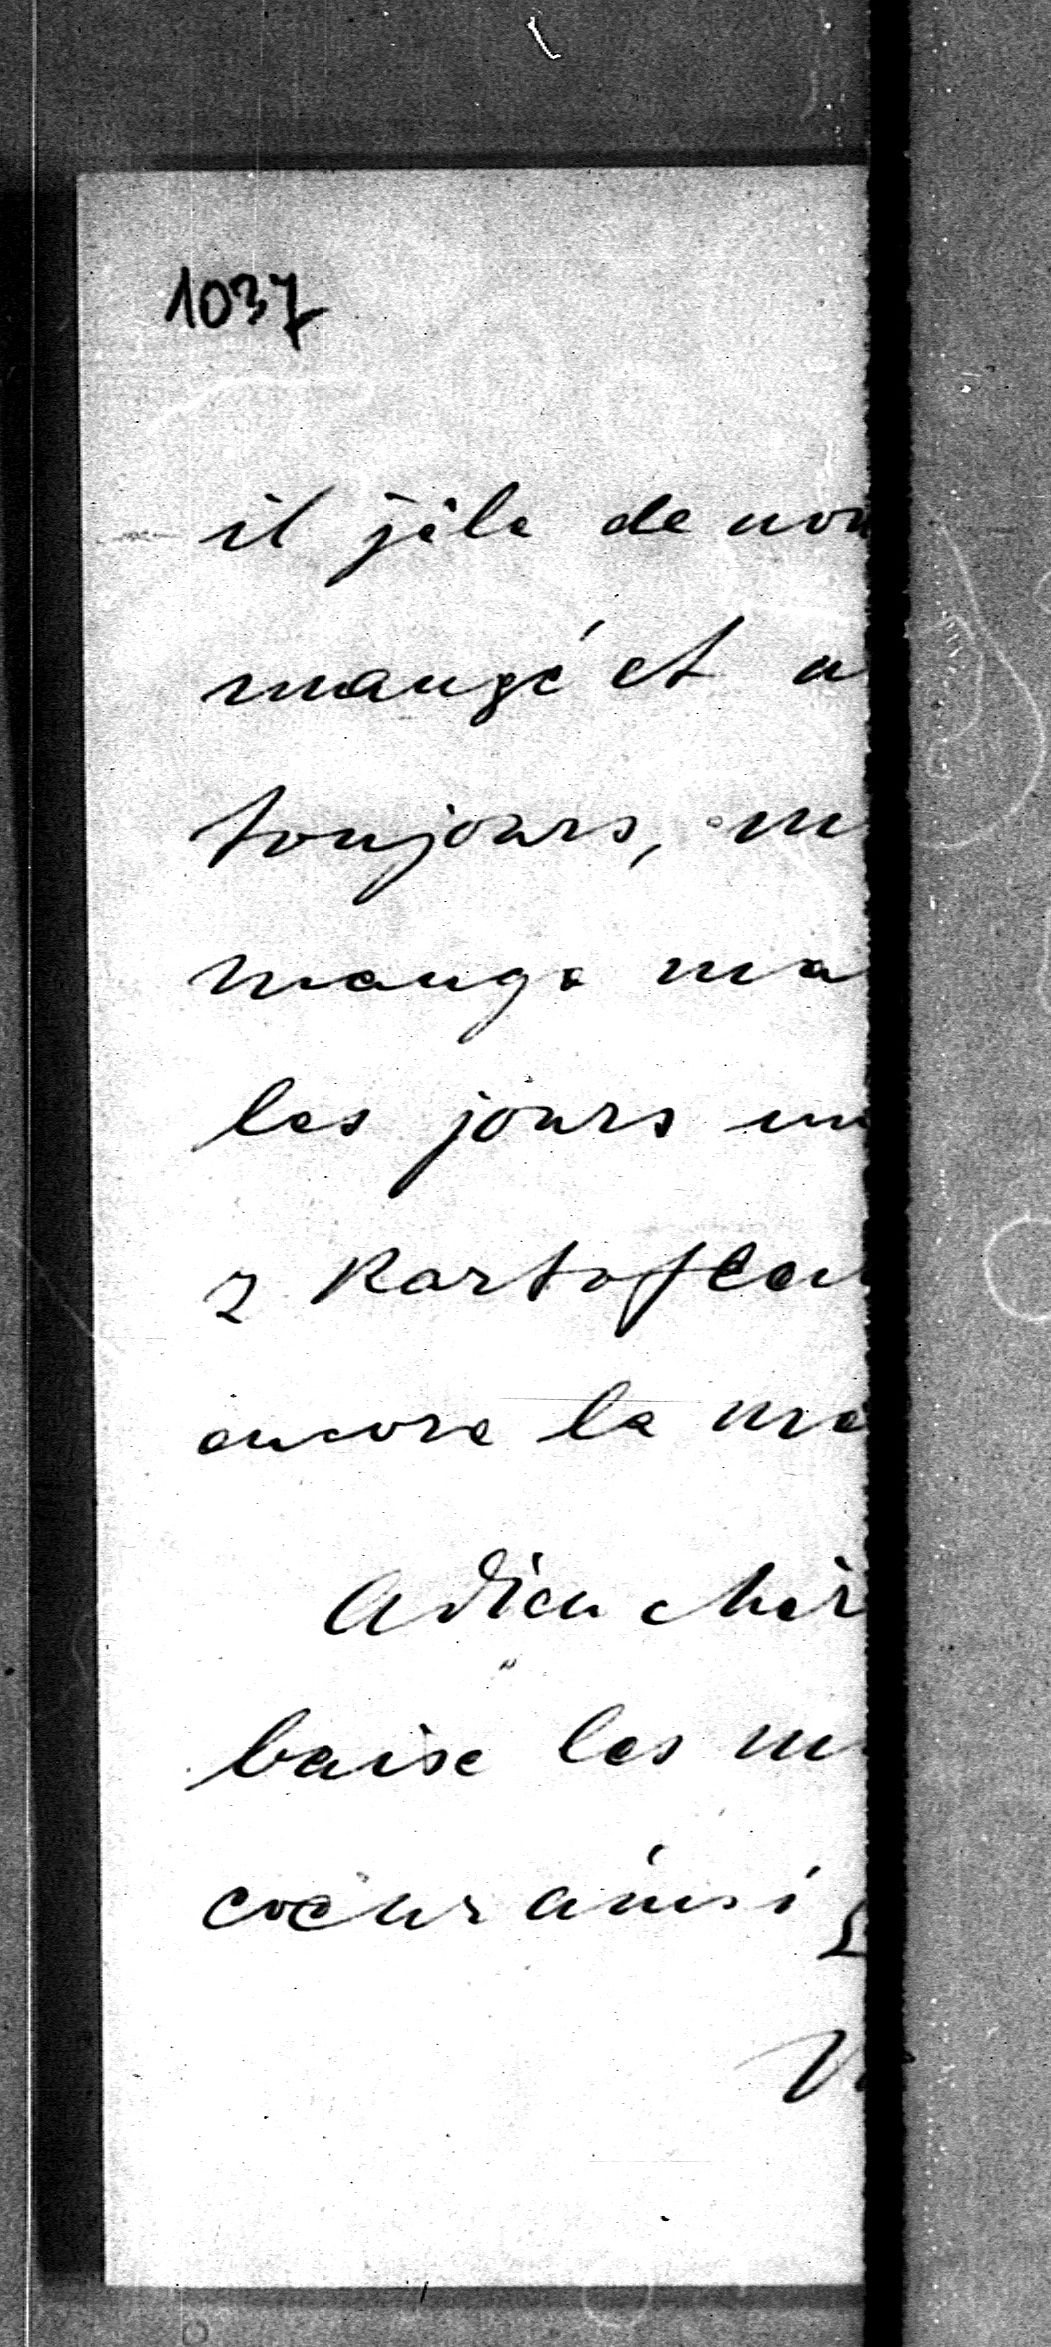 1037
il jèle de nou
mangé et a
toujours, m
mange ma
les jours un
2 Kartoflen
encore la me
Adieu chèr
baise les m
coeur ainsi